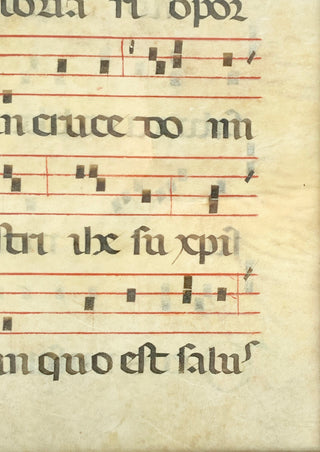 loria n opor
in cruce do mi
stri ihe su xpi
in quo est salus